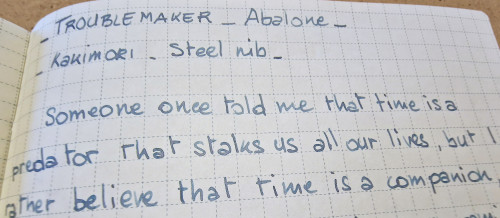 - TROUBLEMAKER - Abalone -
- KAKIMORI - Steel nib -
Someone once told me that time is a
predator that stalks us all our lives, but I
rather believe that time is a companion